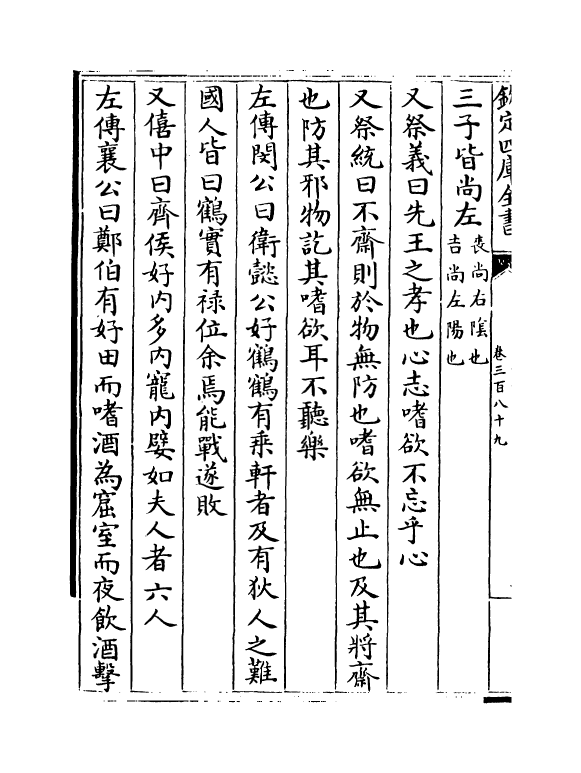 欽定四庫全書
卷三百八十九
三子皆尚左喪尚右陰也吉尚左陽也
又祭義曰先王之孝也心志嗜欲不忘乎心
又祭統曰不齋則於物無防也嗜欲無止也及其將齋
也防其邪物訖其嗜欲耳不聽樂
左傳閔公曰衛懿公好鶴鶴有乘軒者及有狄人之難
國人皆曰鶴實有禄位余焉能戰遂敗
又僖中曰齊侯好内多内寵内嬖如夫人者六人
左傳襄公曰鄭伯有好田而嗜酒為窟室而夜飲酒擊